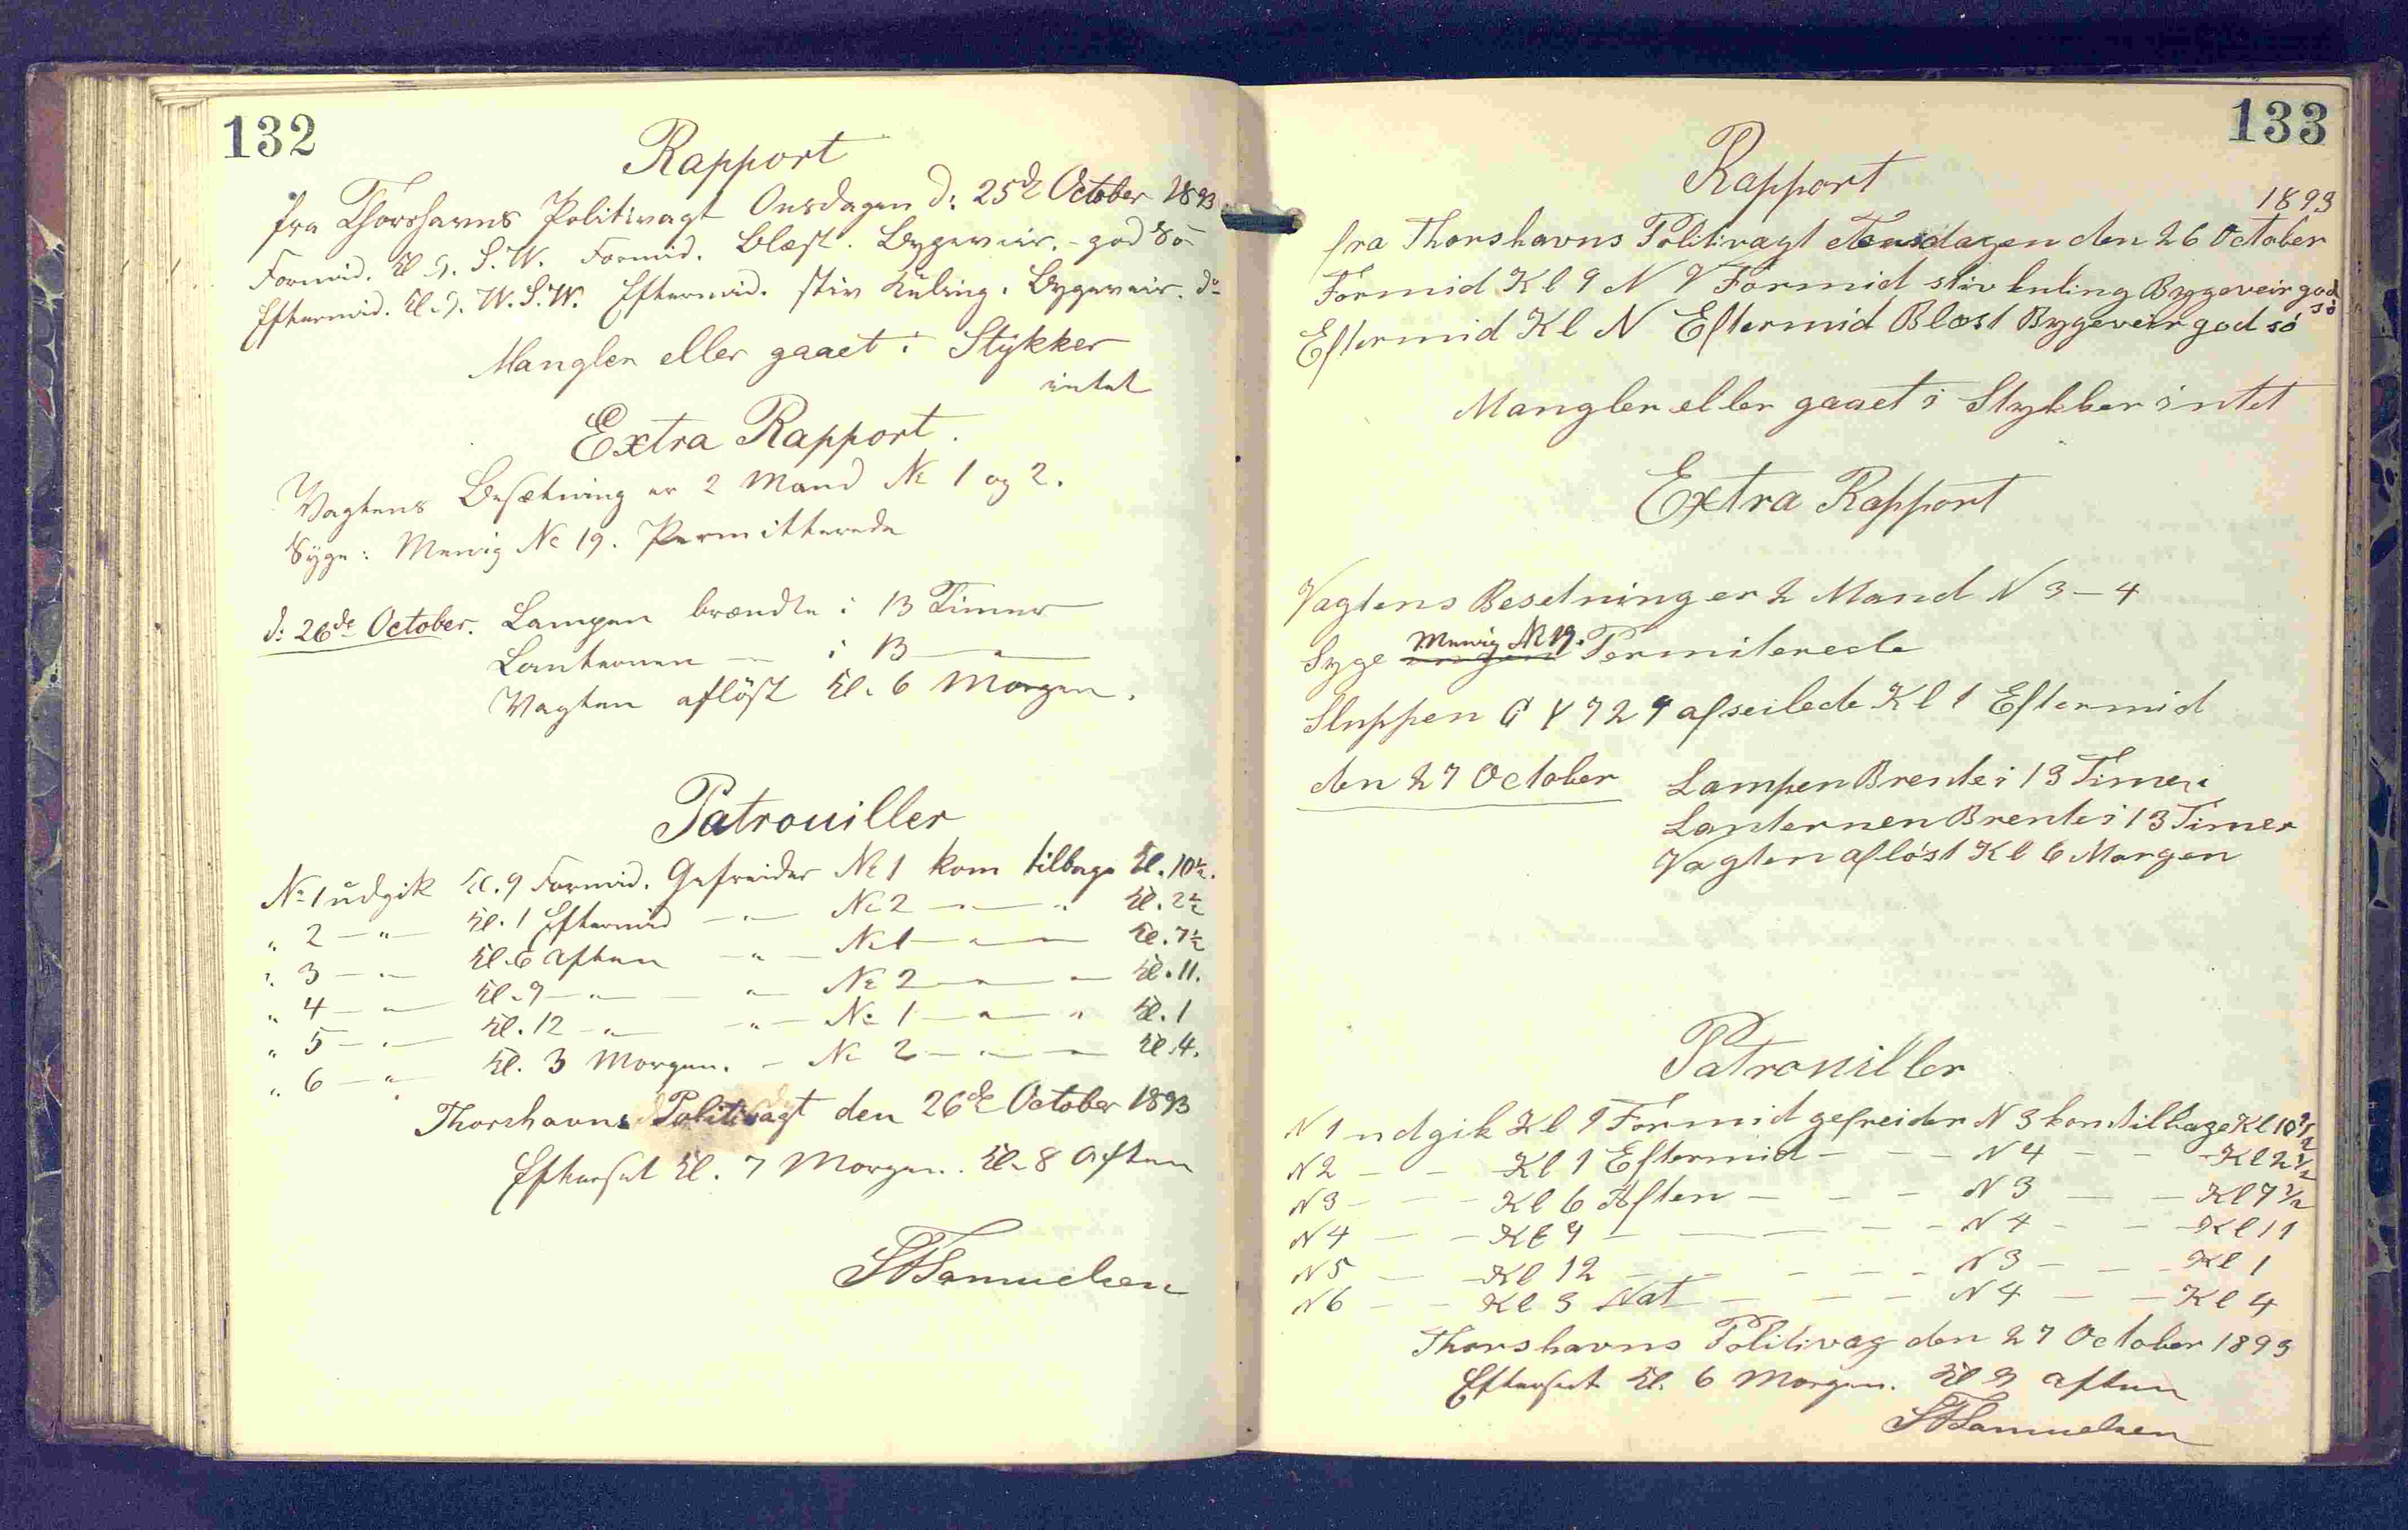 132
Rapport
fra Thorshavns Politivagt Onsdagen d: 25de October 1893
Formid. Kl 9. S.W. Formid. Blæst. Bygeveir. - god Sö
Eftermid. Kl. 9. W.S.W. Eftermid. stiv Kuling. Bygeveir. do
Mangler eller gaaet i Stykker
intet
Extra Rapport.
Vagtens Besætning er 2 Mand No 1 og 2.
Syge: Menig No 19. Permitterede
d: 26de October. Lampen brændte i 13 Timer
Lanternen — " — i 13 — " —
Vagten aflöst Kl. 6 Morgen.
Patrouiller
No 1 udgik Kl. 9 Formid. Gefreider No 1 kom tilbage Kl. 10½.
" 2 — " — Kl. 1 Eftermid — " — No 2 — " — " Kl. 2½
" 3 — " — Kl. 6 Aften — " — No 1 — " — Kl. 7½
" 4 — " — Kl. 9 — " — — " — No 2 — " — Kl. 11.
" 5 — " — Kl. 12 — " — — " — No 1 — " — " Kl. 1
" 6 — " — Kl. 3 Morgen. — No 2 — " — Kl. 4.
Thorshavns Politivagt den 26de October 1893
Efterset Kl. 7 Morgen. Kl. 8 Aften
Samuelsen
133
Rapport
1893
fra Thorshavns Politivagt Torsdagen den 26 October
Formid Kl 9 N V Formid stiv kuling Bygeveir god
só
Eftermid Kl N Eftermid Blæst Bygeveir god só
Mangler eller gaaet i Stykker intet
Extra Rapport
Vagtens Besetning er 2 Mand N 3 – 4
Menig No 19.
Syge ingen Permiterede
Sluppen G Y 729 afseilede Kl 1 Eftermid
den 27 October Lampen Brente i 13 Timer
Lanternen Brente i 13 Timer
Vagten aflóst Kl 6 Morgen
Patrouiller
N 1 udgik Kl 9 Formid gefreider N 3 kom tilbage Kl 10½
N 2 — — Kl 1 Eftermid — — — N 4 — — Kl 2½
N 3 — — Kl 6 Aften — — — N 3 — — Kl 7½
N 4 — — Kl 9 — — — — N 4 — — Kl 11
N 5 — — Kl 12 — — — — N 3 — — Kl 1
N 6 — — Kl 3 Nat — — — N 4 — — Kl 4
Thorshavns Politivag den 27 October 1893
Efterset Kl. 6 Morgen. Kl 9 Aften
Samuelsen